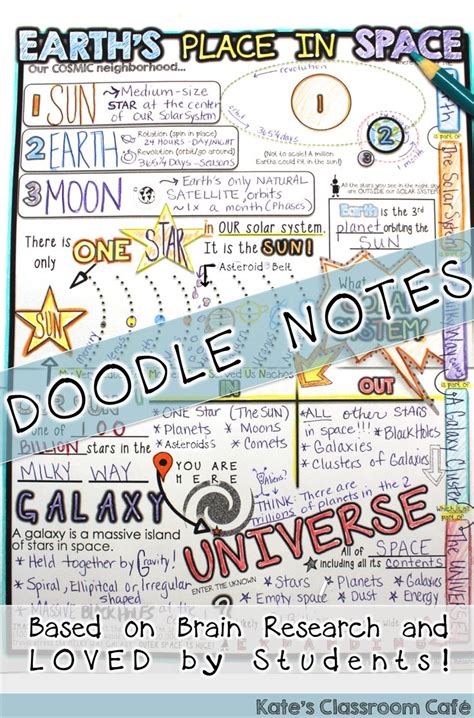 EARTH'S PLACE IN SPACE
Our COSMIC neighborhood...
1 SUN
Medium-size
STAR at the center
of OUR Solar System
revolution
1
2 EARTH
Rotation (spin in place)
24 HOURS - DAY/NIGHT
Revolution (orbit/go around)
365 1/4 Days - Seasons
365 1/4 days
(Not to scale! A million
Earths could fit in the sun!)
2
3
3 MOON
Earth's only NATURAL
SATELLITE, orbits
a month (Phases)
All the stars you see in the night sky
are OUTSIDE our SOLAR SYSTEM!
Earth is the 3rd
planet orbiting the
SUN
There is
only ONE STAR
in OUR solar system.
It is the SUN!
Asteroid Belt
SUN
What
SOLAR
SYSTEM?
DOODLE NOTES
Served Us Nachos
IN
OUT
* ONE Star (The SUN)
* Planets * Moons
* Asteroids * Comets
* ALL other STARS
in space! * Black Holes
* Galaxies
* Clusters of Galaxies
OUR SUN is
one of 100
BILLION stars in the
MILKY WAY
YOU ARE
HERE
Aliens?
THINK: There are
trillions of planets in the
GALAXY
A galaxy is a massive island
of stars in space.
* Held together by Gravity!
* Spiral, Elliptical or Irregular
shaped
* Massive BLACK HOLES
UNIVERSE
ENTER THE UNKNOWN
All of SPACE
including all its contents
* Stars * Planets * Galaxies
* Empty space * Dust * Energy
Earth
is part of
The Solar System
is part of
Milky Way
is part of
A Galaxy Cluster
The UNIVERSE
EXPANDING
Based on Brain Research and
LOVED by Students!
Kate's Classroom Café